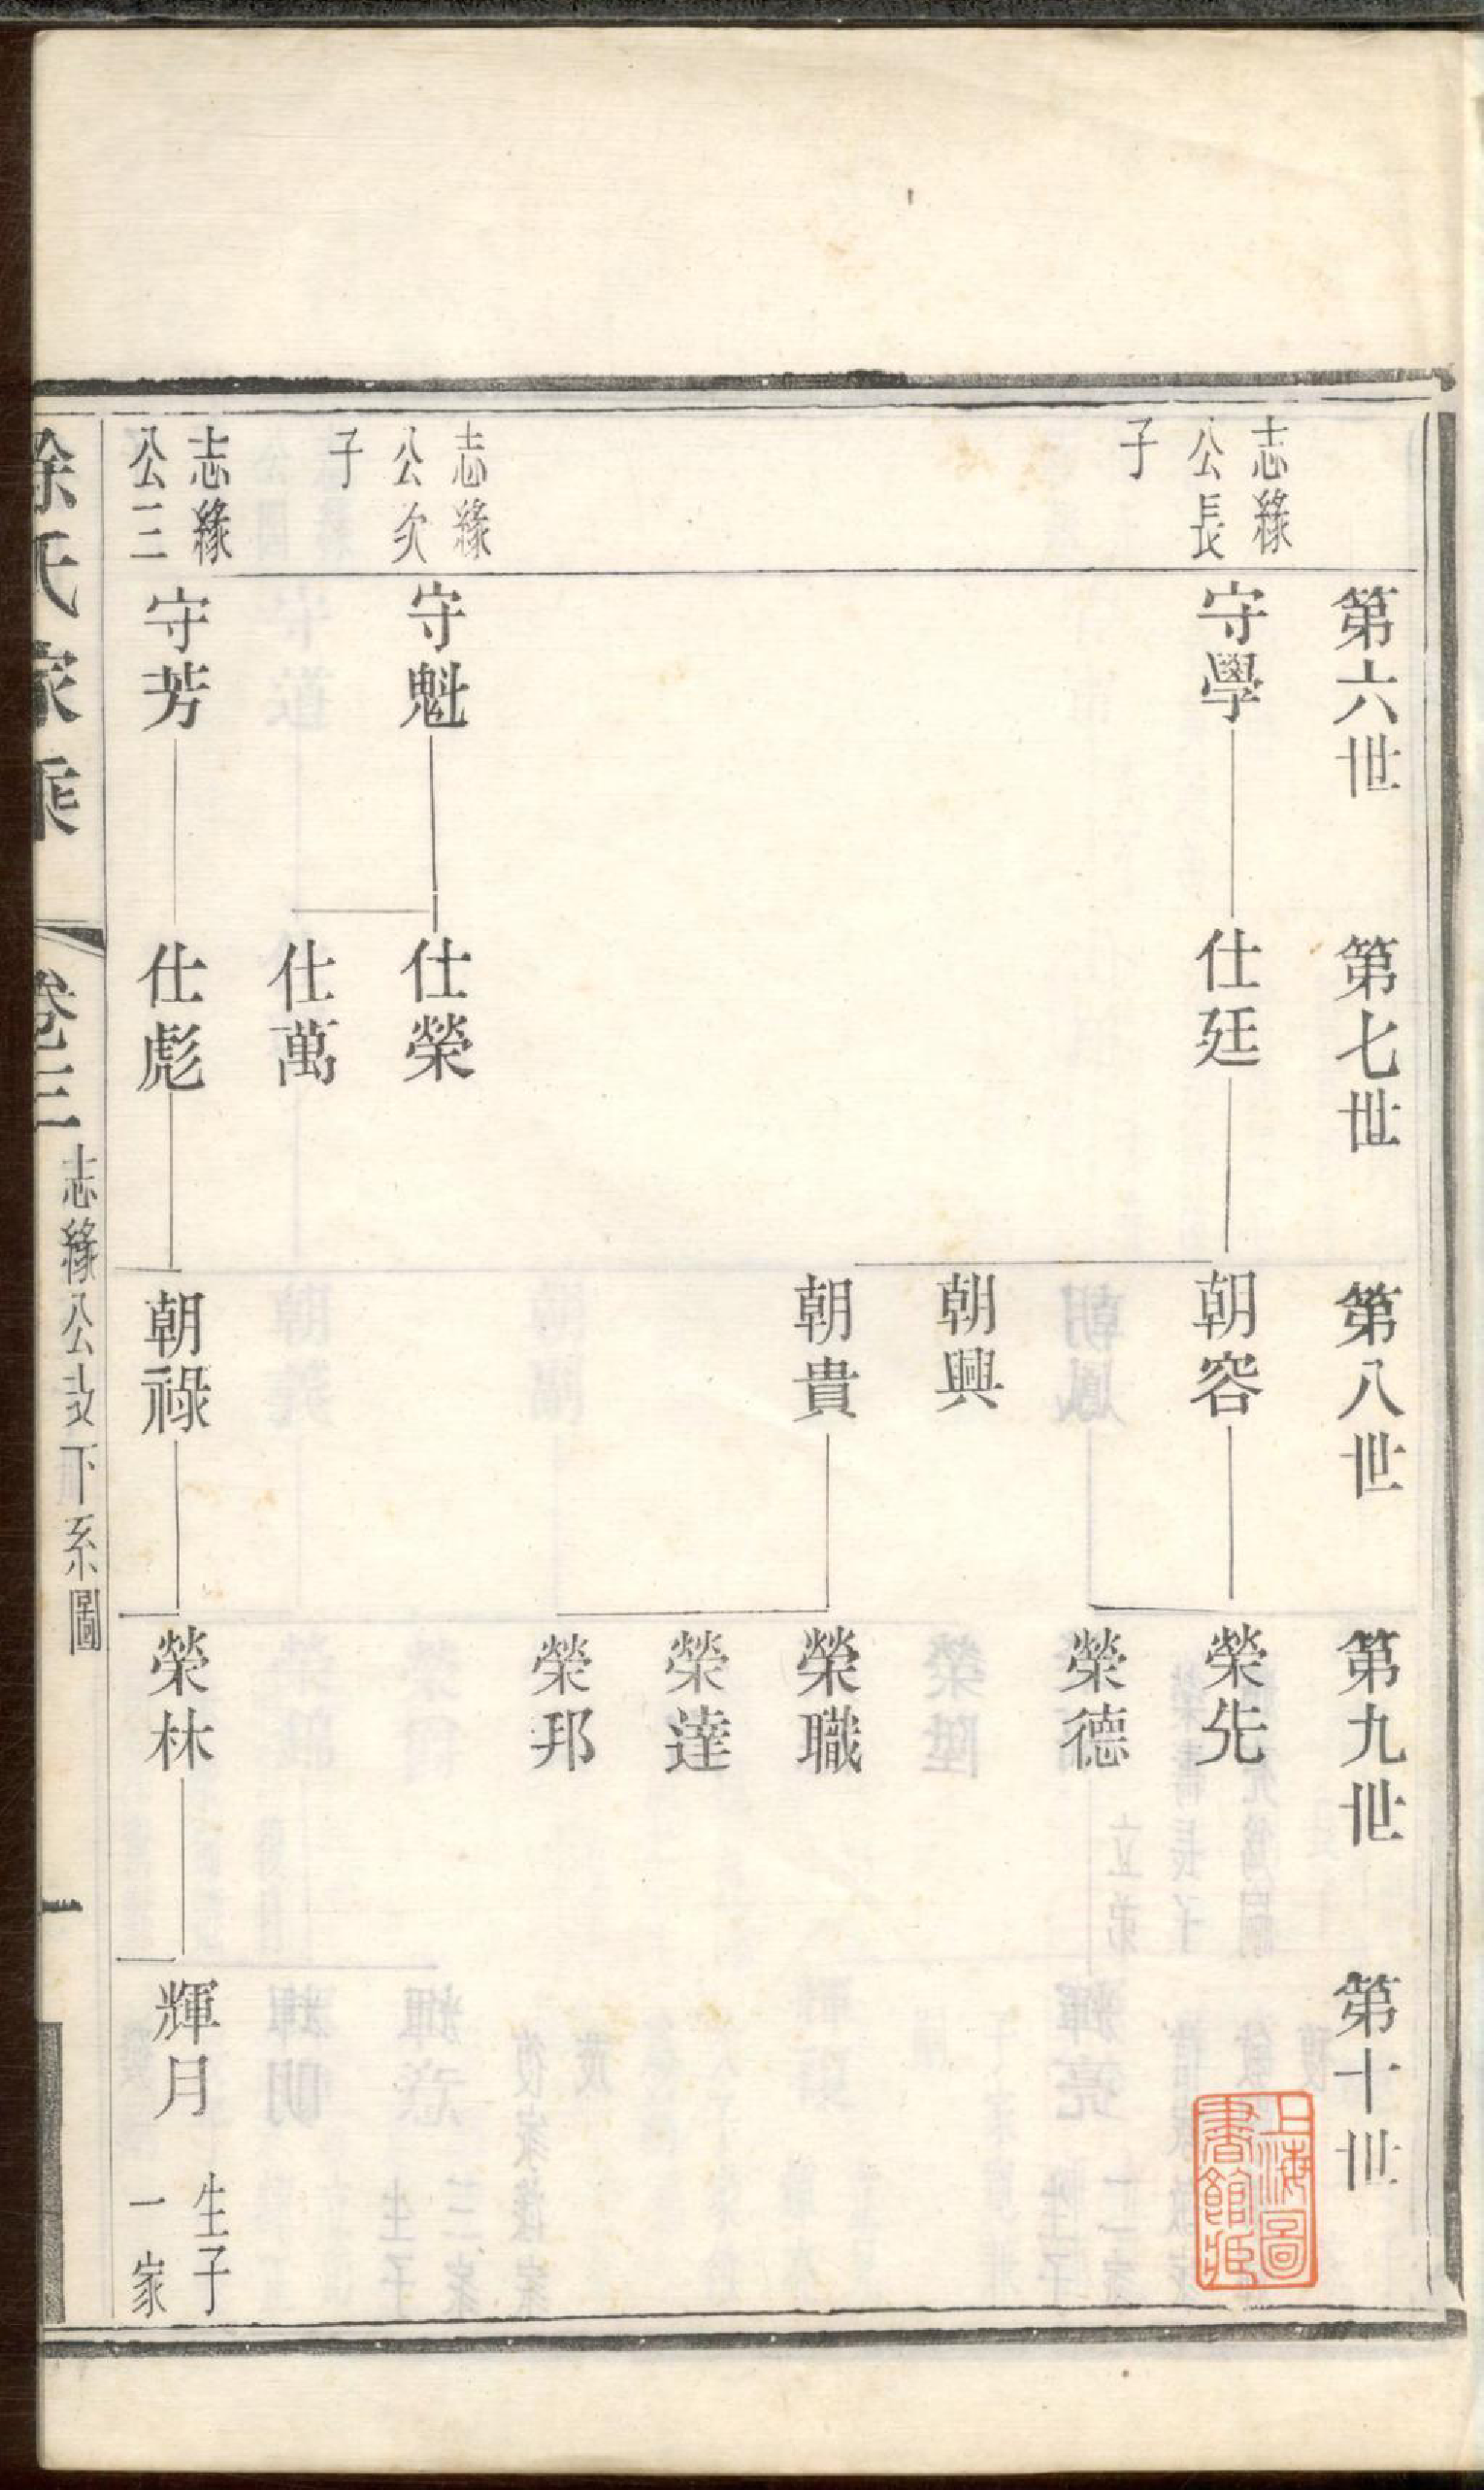 第六世
第七世
第八世
第九世
第十世
志緣
公長
子
守學
仕廷
朝容
榮先
榮德
朝興
朝貴
榮職
榮達
榮邦
志緣
公次
子
守魁
仕榮
仕萬
志緣
公三
守芳
仕彪
朝祿
榮林
輝月
生子
一家
徐氏家乘
卷三
志緣公支下系圖
一
上海圖
書館藏